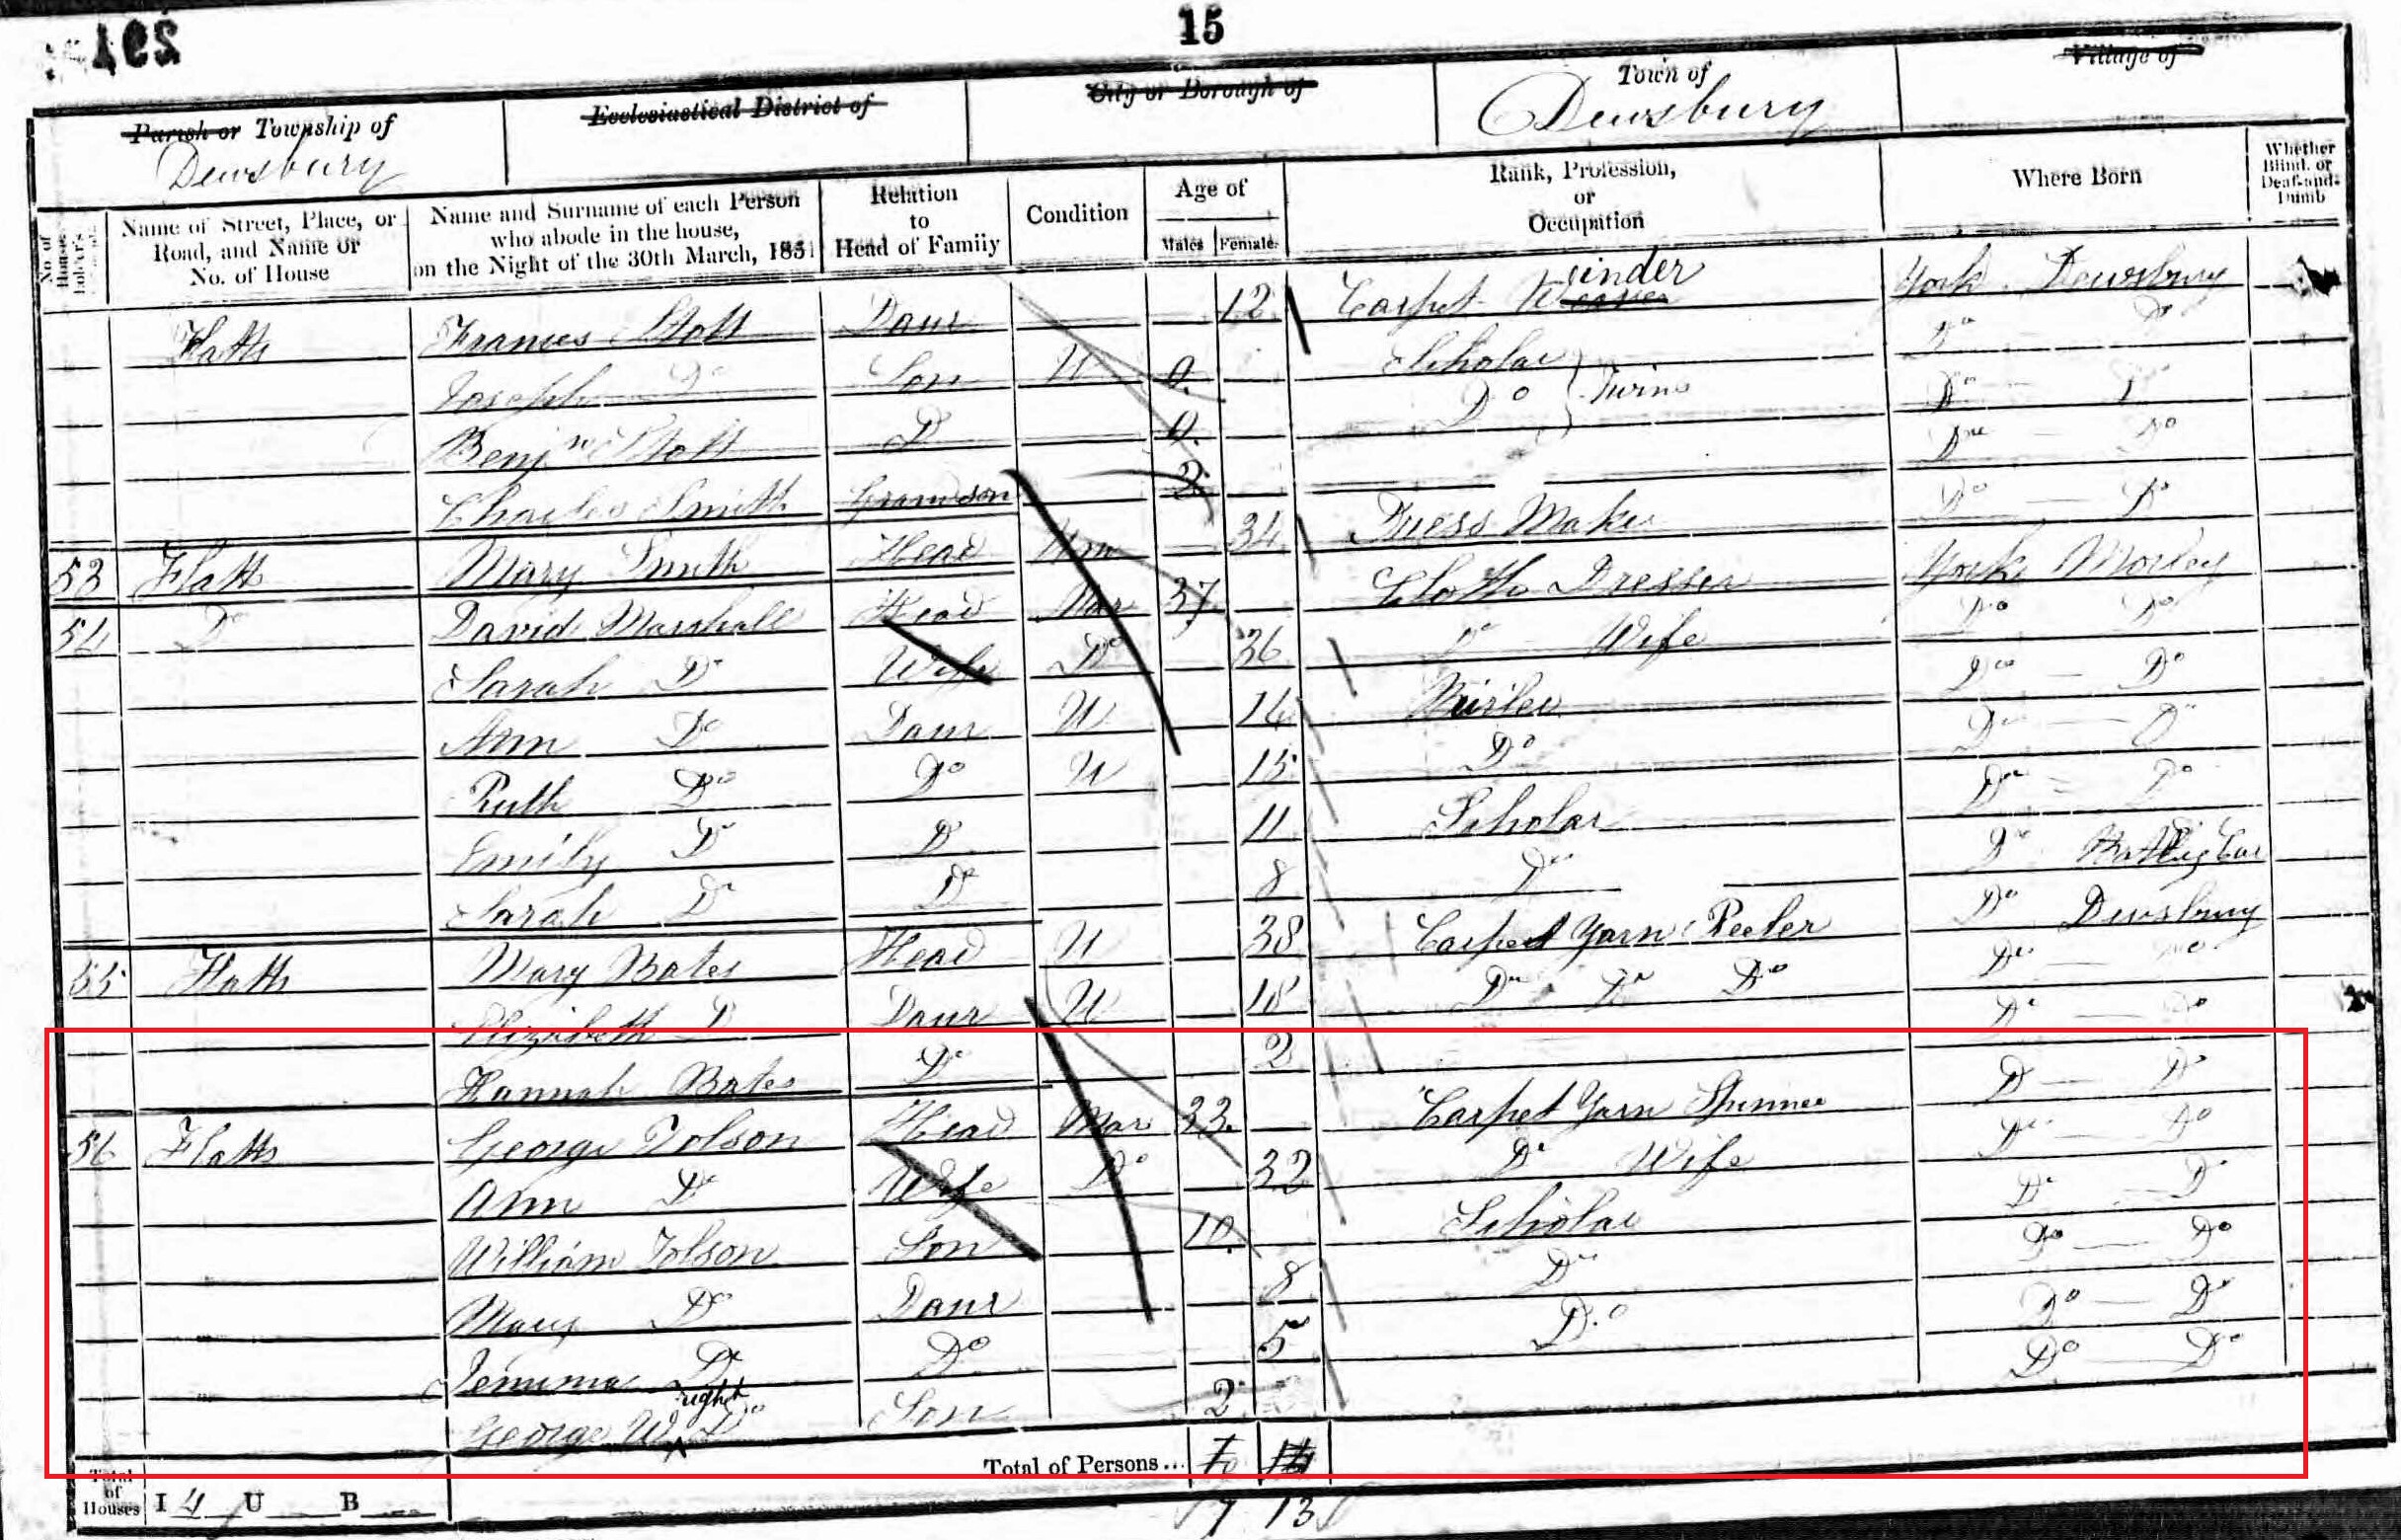 15
Parish or Township of
Dewsbury
Ecclesiastical District of
City or Borough of
Town of
Dewsbury
Village of
No. of House
Name of Street, Place, or Road, and Name or No. of House
Name and Surname of each Person who abode in the house, on the Night of the 30th March, 1851
Relation to Head of Family
Condition
Age of
Males Females
Rank, Profession, or Occupation
Where Born
Whether Blind, or Deaf-and-Dumb
Flatts Frances Stott Daur 12 Carpet Weaver inder York Dewsbury
Joseph Do Son U 9 Scholar Do Do
Benjn Stott Do 9 Do } Twins Do Do
Charles Smith Grandson 2 Do Do
53 Flatts Mary Smith Head Um 34 Dress Maker Do Do
54 Do David Marshall Head Mar 37 Cloth Dresser York Morley
Sarah Do Wife Do 36 Do Wife Do Do
Ann Do Daur U 14 Burler Do Do
Ruth Do Do U 15 Do Do Do
Emily Do Do 11 Scholar Do Do
Sarah Do Do 8 Do Do Batley Car
55 Flatts Mary Bates Head U 38 Carpet Yarn Reeler Do Dewsbury
Elizabeth D Daur U 18 Do Do Do Do Do
Hannah Bates Do 2 Do Do
56 Flatts George Tolson Head Mar 33 Carpet Yarn Spinner D Do
Ann Do Wife Do 32 Do Wife Do Do
William Tolson Son 10 Scholar Do D
Mary Do Daur 8 Do Do Do
Jemima Do Do 5 Do Do Do
right
George W Do Son 2 Do Do
Total of Houses I 4 U B
Total of Persons... 7 14
7 13